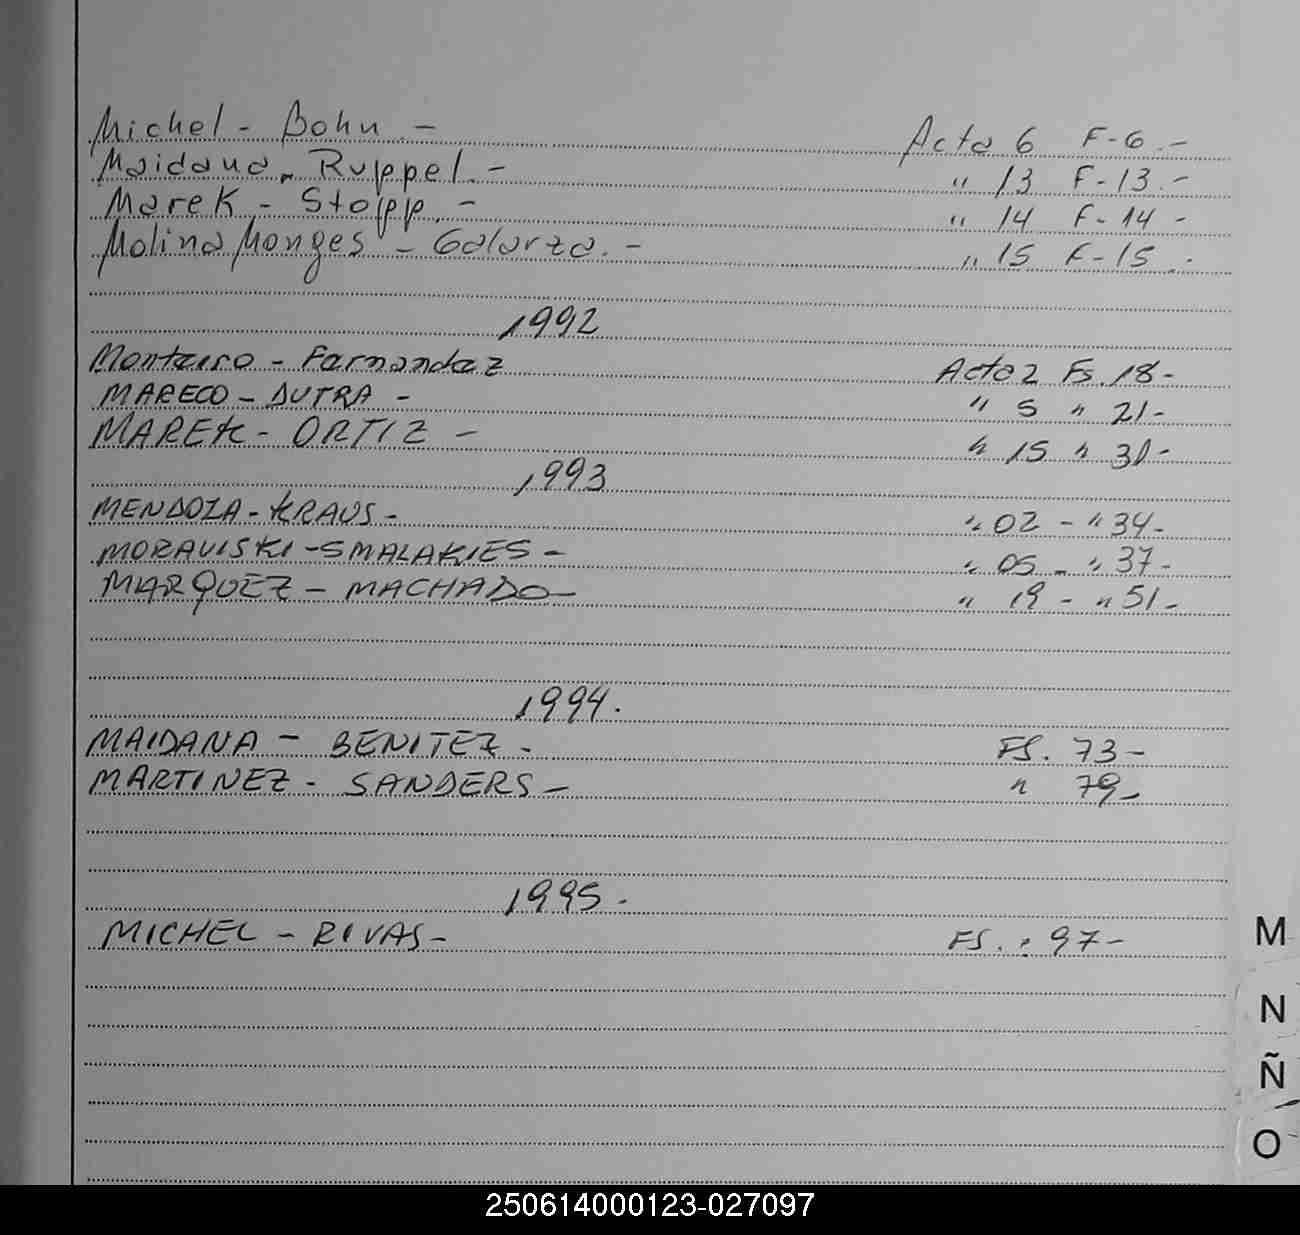 Michel - Bohn - Acta 6 F-6.-
Maidana - Ruppel - " 13 F-13.-
Marek - Stopp. - " 14 F-14 -
Molina Monges - Galarza. - " 15 F-15.-
1992
Monteiro - Fernandez Acta 2 Fs. 18-
MARECO - DUTRA - " 5 " 21-
MAREK - ORTIZ - " 15 " 31-
1993
MENDOZA - KRAUS - " 02 - " 34-
MORAVISKI - SMALAKIES - " 05 - " 37-
MARQUEZ - MACHADO - " 19 - " 51-
1994.
MAIDANA - BENITEZ - FS. 73-
MARTINEZ - SANDERS - " 79-
1995.
MICHEL - RIVAS - FS.: 97-
M
N
Ñ
O
250614000123-027097